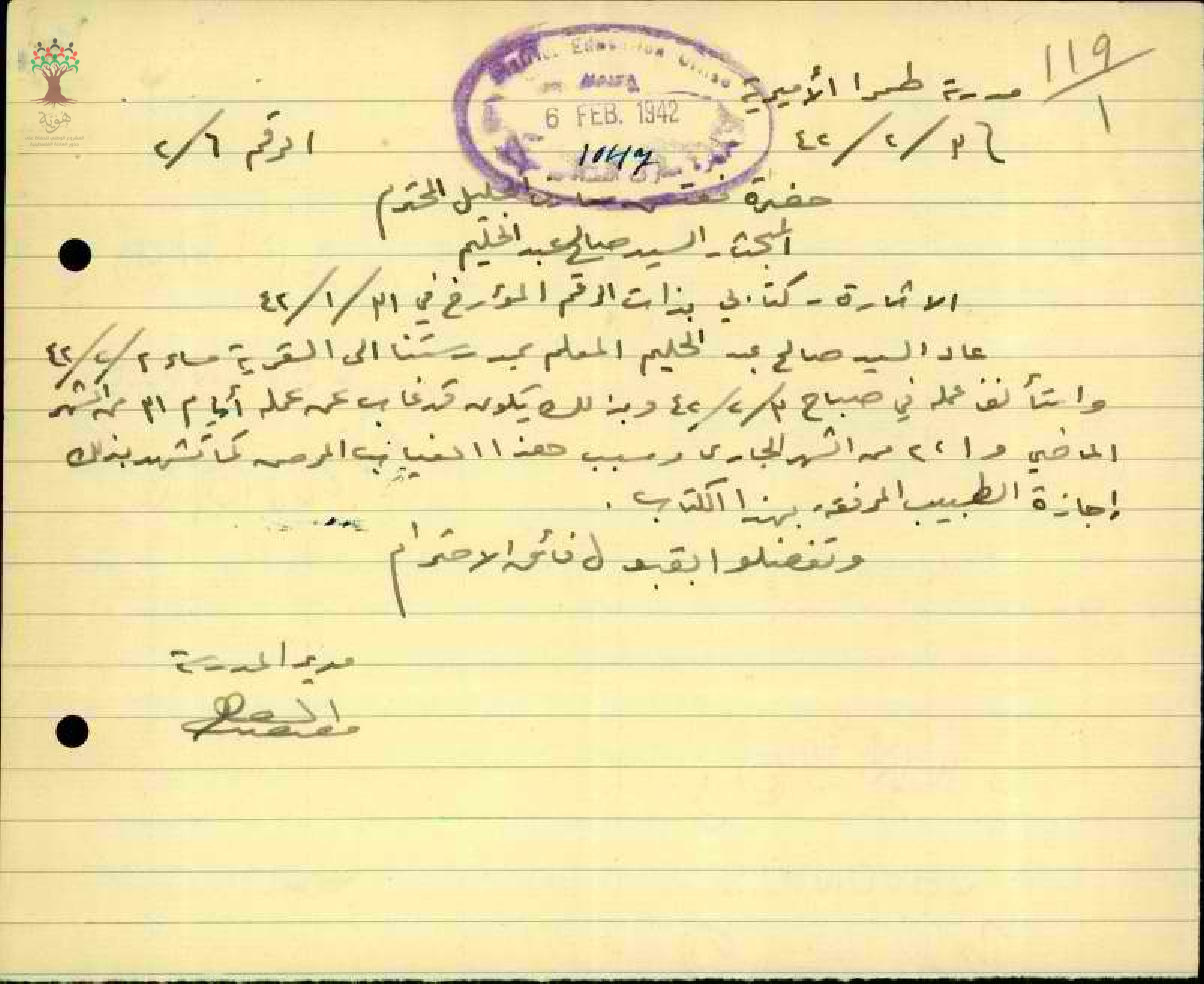 119
1
مدرسة طمرا الأميرية
٣/٢/٤٢
الرقم ٢/٦
District Education Office
HAIFA
6 FEB. 1942
1047
حضرة مفتش معارف الجليل المحترم
المبحث - السيد صالح عبد الحليم
الاشارة - كتابي بذات الرقم المؤرخ في ٣١/١/٤٢
عاد السيد صالح عبد الحليم المعلم بمدرستنا الى القرية مساء ٢/٢/٤٢
واستأنف عمله في صباح ٣/٢/٤٢ وبذلك يكون قد غاب عن عمله أيام ٣١ من الشهر
الماضي و ١ ، ٢ من الشهر الجاري وسبب هذا الغياب المرض كما تشهد بذلك
إجازة الطبيب المرفقة بهذا الكتاب .
وتفضلوا بقبول فائق الاحترام
مدير المدرسة
هوية